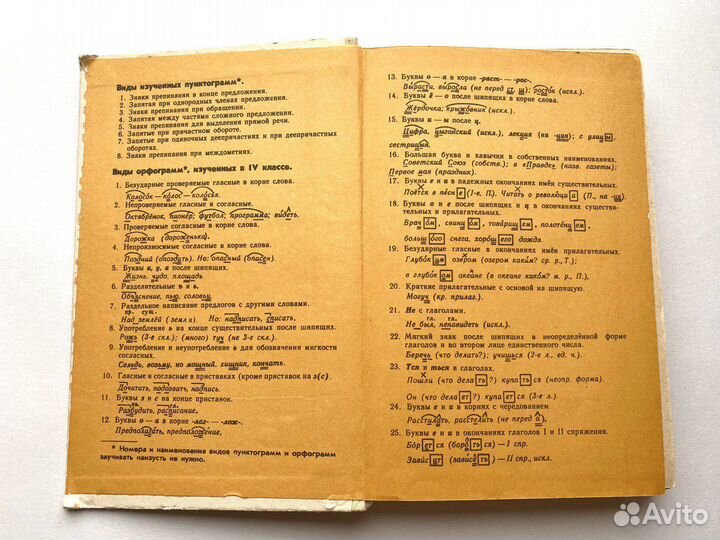 Виды изученных пунктограмм*.
1. Знаки препинания в конце предложения.
2. Запятая при однородных членах предложения.
3. Знаки препинания при обращении.
4. Запятая между частями сложного предложения.
5. Знаки препинания для выделения прямой речи.
6. Запятые при причастном обороте.
7. Запятые при одиночных деепричастиях и при деепричастных
оборотах.
8. Знаки препинания при междометиях.
Виды орфограмм*, изученных в IV классе.
1. Безударные проверяемые гласные в корне слова.
Колосок — колос — колосья.
2. Непроверяемые гласные и согласные.
Октябрёнок, пионер; футбол; программа; видеть.
3. Проверяемые согласные в корне слова.
Дорожка (дороженька).
4. Непроизносимые согласные в корне слова.
Поздний (опоздать). Но: опасный (опасен).
5. Буквы и, у, а после шипящих.
Жизнь, чудо, площадь.
6. Разделительные ъ и ь.
Объяснение, пью, соловьи
7. Раздельное написание предлогов с другими словами.
пр. сущ.
Над землёй (земля). Но: надписать, списать.
8. Употребление ь на конце существительных после шипящих.
Рожь (3-е скл.); (много) туч (не 3-е скл.).
9. Употребление и неупотребление ь для обозначения мягкости
согласных.
Сельдь, возьму, но мощный, хищник, кончать.
10. Гласные и согласные в приставках (кроме приставок на з(с).
Дочитать, подавать, надпись.
11. Буквы з и с на конце приставок.
зв. гл.
Разбудить, расписание.
12. Буквы о — а в корне -лаг- — -лож-.
Предполагать, предположение.
* Номера и наименования видов пунктограмм и орфограмм
заучивать наизусть не нужно.
13. Буквы о — а в корне -раст- — -рос-.
Вырасти, выросла (не перед ст, щ); росток (искл.).
14. Буквы ё — о после шипящих в корне слова.
Жёрдочка; крыжовник (искл.).
15. Буквы и — ы после ц.
Цифра, цыганский (искл.), лекция (на -ция); с улицы,
сестрицын.
16. Большая буква и кавычки в собственных наименованиях.
Советский Союз (собств.); в «Правде» (назв. газеты);
Первое мая (праздник).
17. Буквы е и и в падежных окончаниях имён существительных.
Поётся в песне (1-е, П.). Читать о революции (П., на -ия).
18. Буквы о и е после шипящих и ц в окончаниях существи-
тельных и прилагательных.
Врачом, свинцом, товарищем, полотенцем,
большого снега, хорошего дождя.
19. Безударные гласные в окончаниях имён прилагательных.
Глубоким озером (озером каким? ср. р., Т.);
в глубоком океане (в океане каком? м. р., П.).
20. Краткие прилагательные с основой на шипящую.
Могуч (кр. прилаг.).
21. Не с глаголами.
гл. гл.
Не был, ненавидеть (искл.).
22. Мягкий знак после шипящих в неопределённой форме
глаголов и во втором лице единственного числа.
Беречь (что делать?); учишься (2-е л., ед. ч.).
23. Тся и ться в глаголах.
Пошли (что делать?) купаться (неопр. форма)
Он (что делает?) купается (3-е л.).
24. Буквы е и и в корнях с чередованием.
Расстилать, расстелить (не перед а).
25. Буквы е и и в окончаниях глаголов I и II спряжения.
Борется (бороться) — I спр.
Зависит (зависеть) — II спр., искл.
Avito